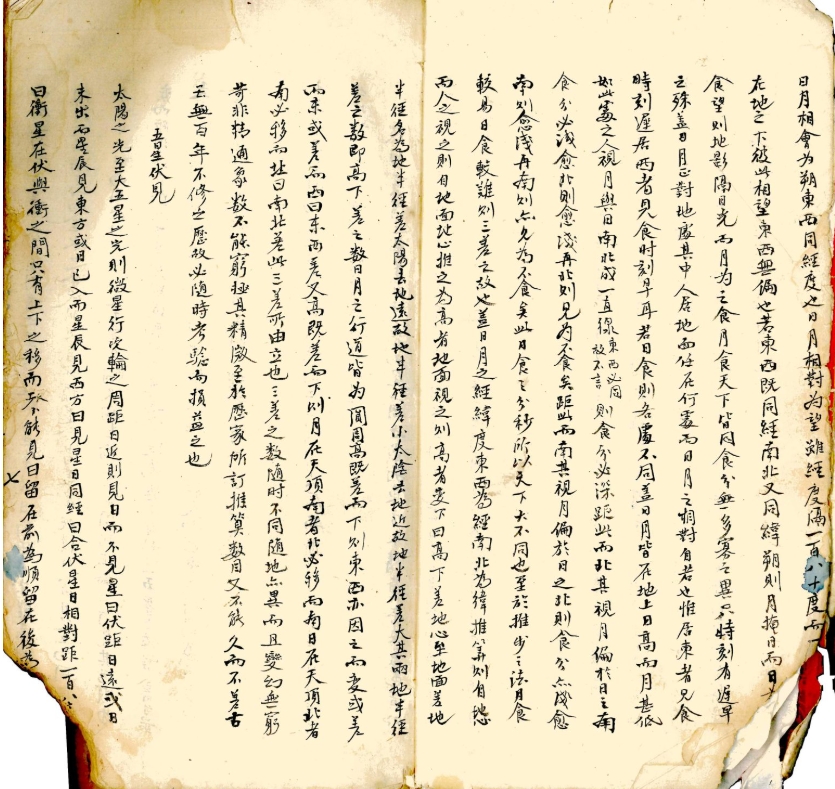 日月相會為朔東西同經度也日月相對為望雖經度隔一百八十度而
在地之下彼此相望東西無偏也若東西既同經南北又同緯朔則月掩日而日
食望則地影隔日光而月為之食月食天下皆同食分無多寡之異只時刻有遲早
之殊蓋日月正對地處其中人居地面任在何處而日月之相對自若也惟居東者見食
時刻遲居西者見食時刻早耳若日食則各處不同蓋日月皆在地上日高而月甚低
如此處之人視月與日南北成一直線東西必同故不言則食分必深距此而北其視月偏於日之南
食分必淺愈北則愈淺再北則見為不食矣距此而南其視月偏於日之北則食分亦淺愈
南則愈淺再南則亦見為不食矣此日食之分秒所以天下大不同也至於推步之法月食
較易日食較難則三差之故也蓋日月之經緯度東西為經南北為緯推算則自地心
而人之視之則自地面地心推之為高者地面視之則高者變下曰高下差地心至地面差地
半徑名為地半徑差太陽去地遠故地半徑差小太陰去地近故地半徑差大其兩地半徑
差之數即高下差之數日月之行道皆為圓周高既差而下則東西亦因之而變或差
而東或差而西曰東西差又高既差而下則月在天頂南者北必移而南日在天頂北者
南必移而北曰南北差此三差所由立也三差之數隨时不同隨地亦異而且變幻無窮
苟非精通象數不能窮極其精微至於歷家所訂推算數目又不能久而不差古
云無百年不修之歷故必隨時考驗而損益之也
五星伏見
太陽之光至大五星之光則微星行次輪之周距日近則見日而不見星曰伏距日遠或日
未出而星辰見東方或日已入而星辰見西方曰見星日同經曰合伏星日相對距一百八
曰衝星在伏與衝之間只有上下之移而不能見曰留在前為順留在後為